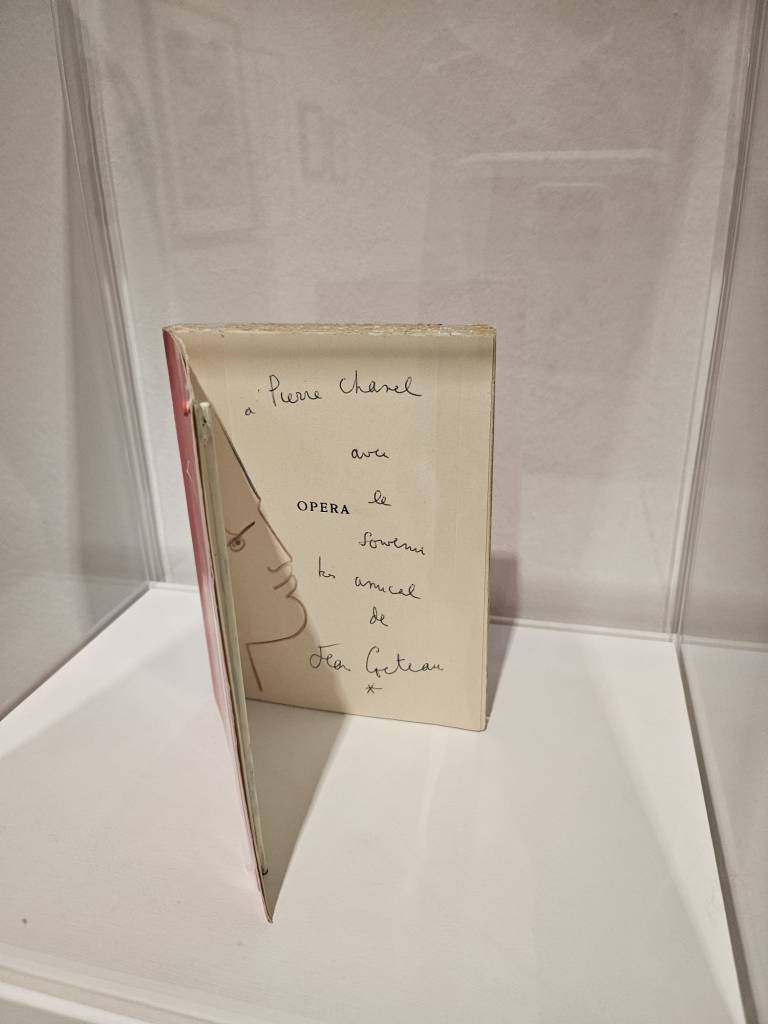 à Pierre Chanel
avec
OPERA le
souvenir
très amical
de
Jean Cocteau
*